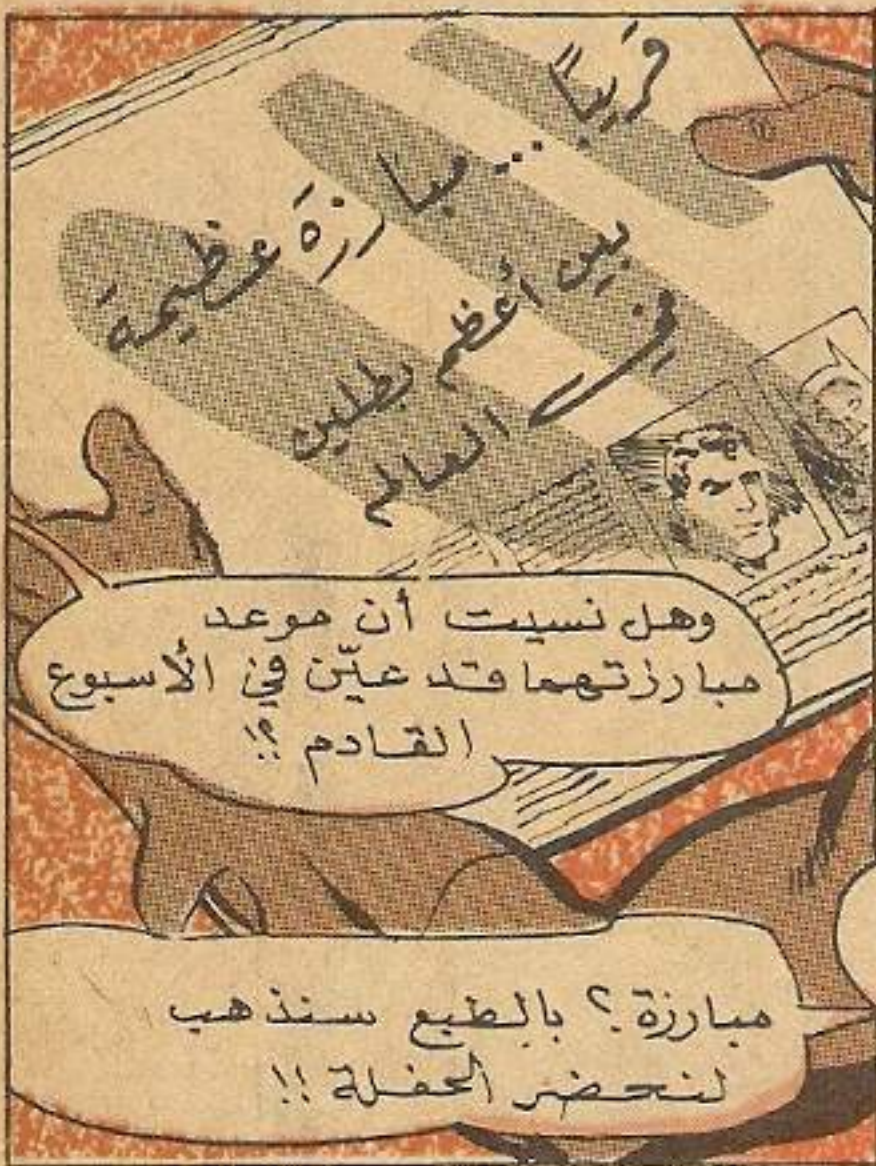 قريباً...
مبارزة عظيمة
بين أعظم بطلين
في العالم
وهل نسيت أن موعد
مبارزتهما قد عيّن في الأسبوع
القادم ؟!
مبارزة ؟ بالطبع سنذهب
لنحضر الحفلة !!